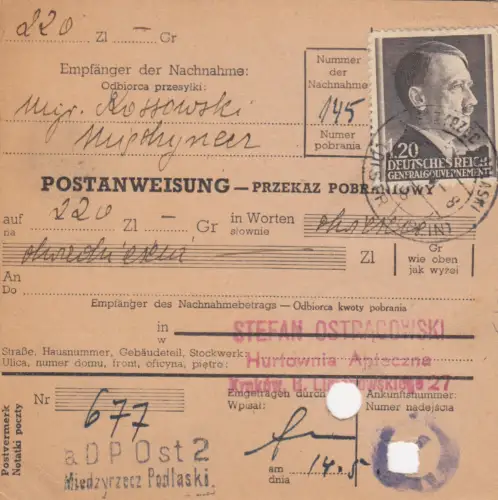 220 Zl — Gr
Empfänger der Nachnahme:
Odbiorca przesyłki:
Mgr. Kossowski
Nummer
der
Nachnahme
145
Numer
pobrania
1.20
DEUTSCHES REICH
GENERALGOUVERNEMENT
POSTANWEISUNG — PRZEKAZ POBRANIOWY
auf 220 Zl — Gr in Worten
na słownie
Zl Gr
wie oben
jak wyżej
An
Do
Empfänger des Nachnahmebetrags — Odbiorca kwoty pobrania
in
w
STEFAN OSTRACOWSKI
Straße, Hausnummer, Gebäudeteil, Stockwerk:
Ulica, numer domu, front, oficyna, piętro:
Hurtownia Apteczna
Kraków, 27
Postvermerk
Notatki poczty
Nr 677
Eingetragen durch
Wpisał:
Ankunftsnummer:
Numer nadejścia
a DP Ost 2
Międzyrzec Podlaski.
am
dnia
14.5